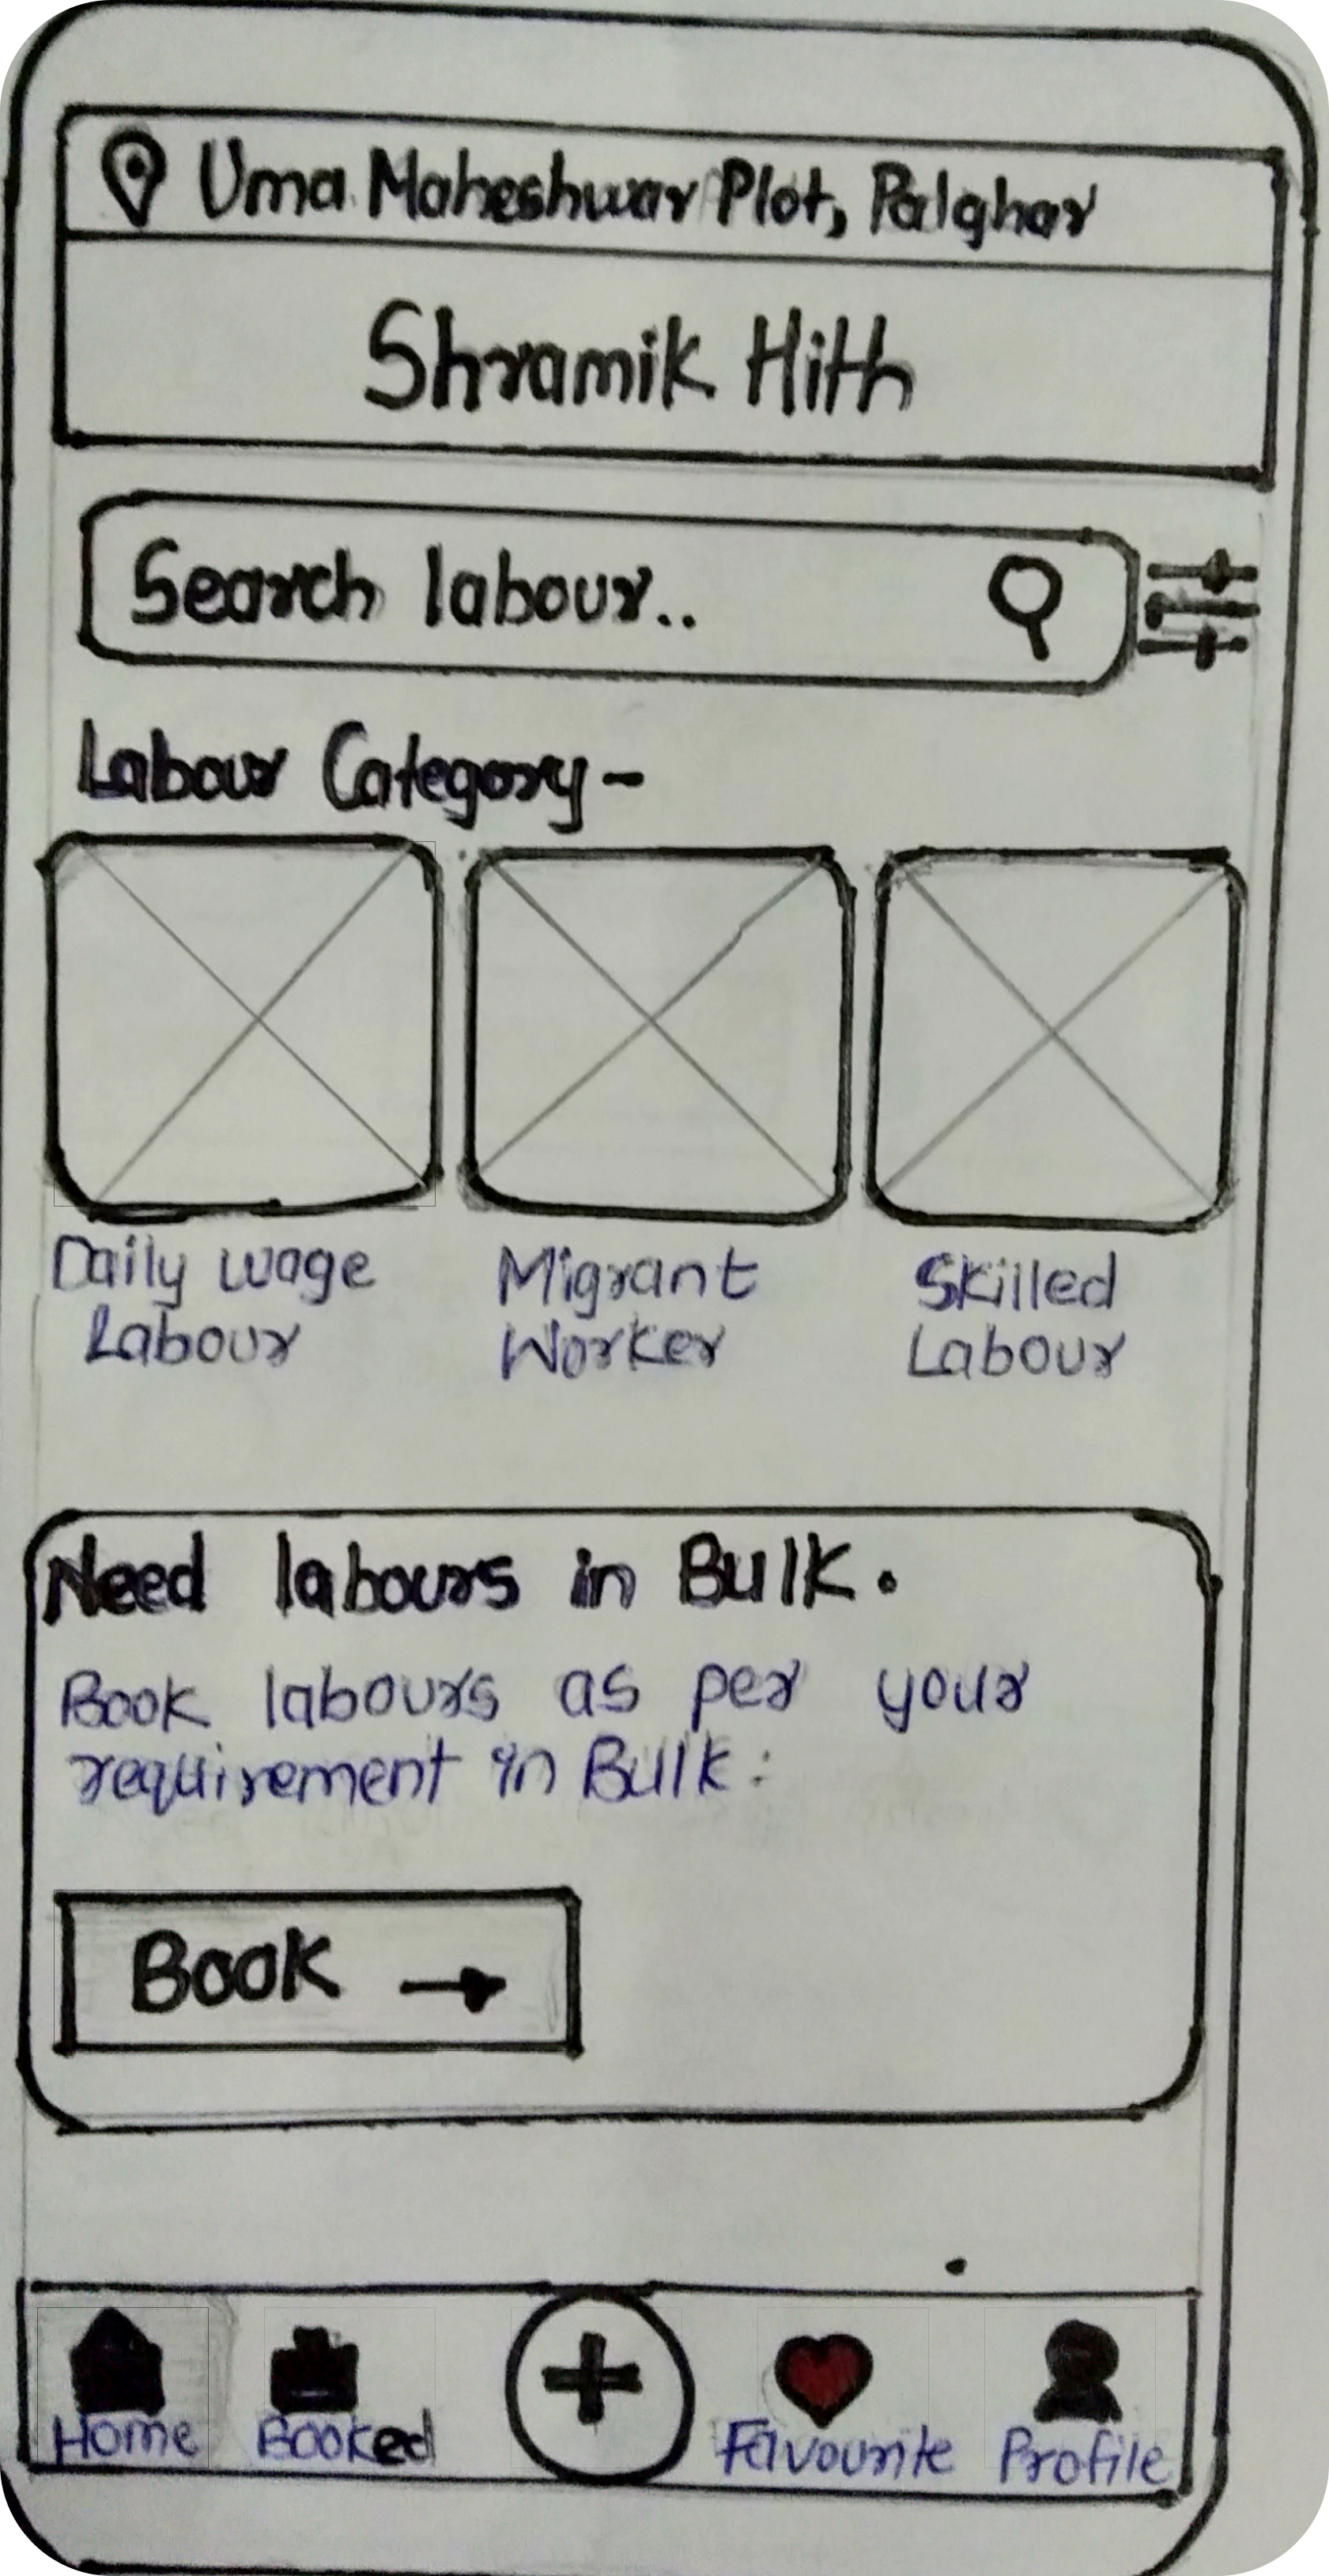 Uma Maheshwar Plot, Palghar
Shramik Hith
Search labour..
Labour Category -
Daily wage Labour
Migrant Worker
Skilled Labour
Need labours in Bulk.
Book labours as per your
requirement in Bulk:
Book →
Home Booked + Favourite Profile